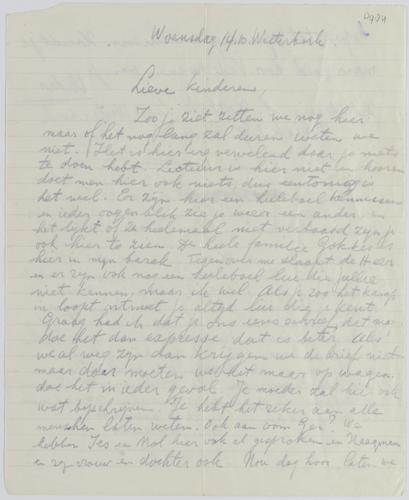 Woensdag 14.10. Westerbork.
Lieve kinderen,
Zoo je ziet zitten we nog hier
maar of het nog lang zal duren weten we
niet. Het is hier erg vervelend daar je niets
te doen hebt. Lectuur is hier niet en hooren
doet men hier ook niets, dus eentonig is
het wel. Er zijn hier een heeleboel kennissen
en ieder oogenblik zie je weer een ander, en
het lijkt of ze heelemaal niet verbaasd zijn je
ook hier te zien. De heele familie Gokkes is
hier in mijn barak. Tegenover me slaapt de Heer
en er zijn ook nog een heeleboel lui die jullie
niet kennen, maar ik wel. Als je zoo het kamp
in loopt ontmoet je altijd lui die je kent.
Graag had ik dat je ons eens schreef, dat
doe het dan expresse, dat is beter. Als
we al weg zijn dan krijgen we de brief niet
maar daar moeten we het maar op wagen,
doe het in ieder geval. Je moeder zal hier ook
wat bijschrijven. Je hebt het zeker aan alle
menschen laten weten. Ook aan oom
hebben Jes en Mol hier ook al gesproken en
en zijn vrouw en dochter ook. Nou dag hoor, laten we